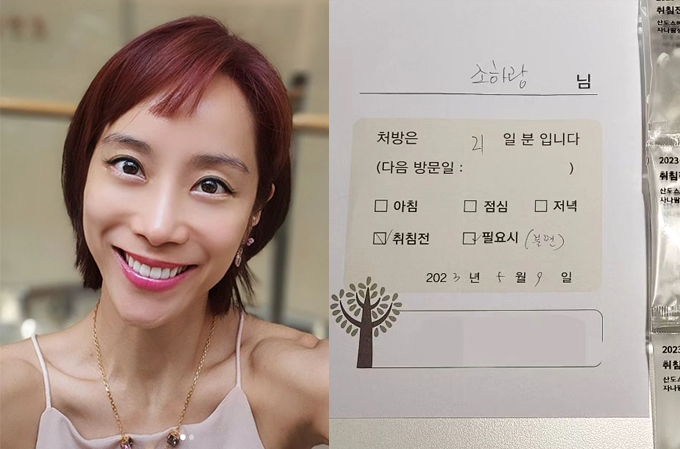 소하랑 님
처방은 21 일 분 입니다
(다음 방문일 : )
□ 아침 □ 점심 □ 저녁
☑ 취침전 ☑ 필요시 (불면)
2023 년 5 월 9 일
취침전
산도스
자나팜
2023
취침
산도스
자나팜
2023
취침
산도스
자나팜